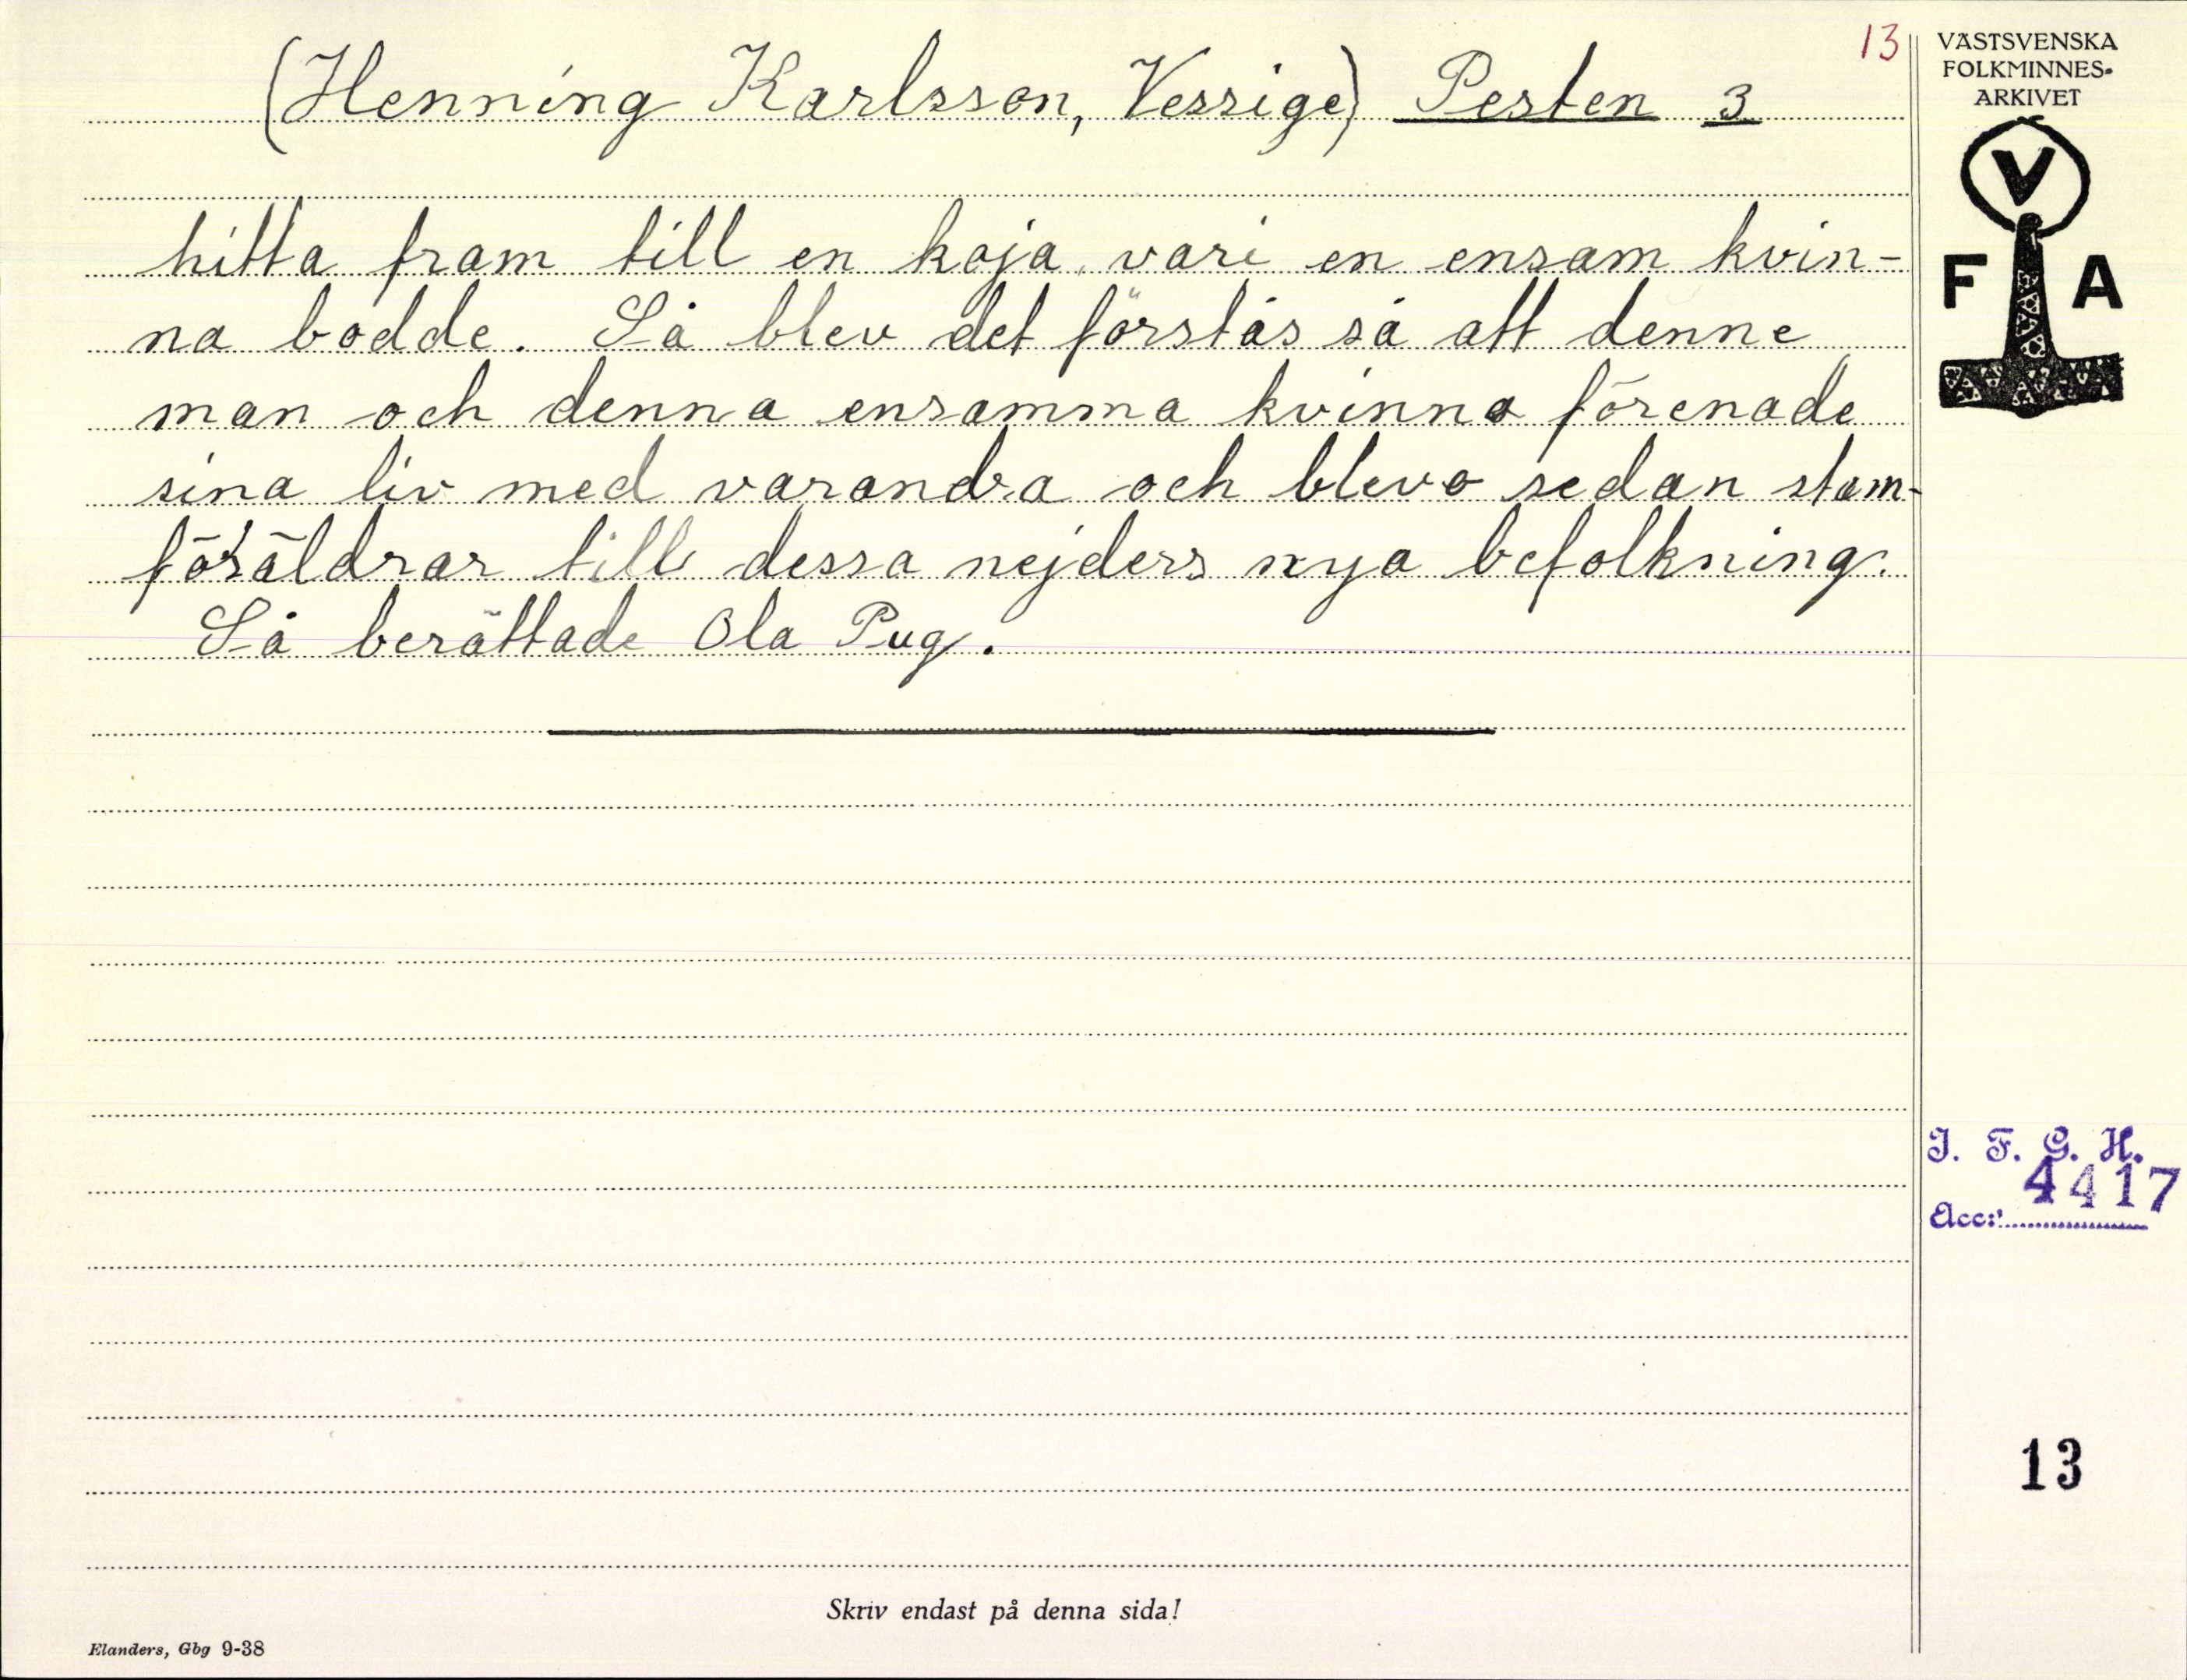 13
(Henning Karlsson, Vessige) Pesten 3
hitta fram till en koja vari en ensam kvin-
na bodde. Så blev det förstås så att denne
man och denna ensamma kvinna förenade
sina liv med varandra och blevo sedan stam-
föräldrar till dessa nejders nya befolkning.
Så berättade Ola Pug.
Skriv endast på denna sida!
Elanders, Gbg 9-38
VÄSTSVENSKA
FOLKMINNES-
ARKIVET
V
F A
I. F. G. H.
4417
Acc:
13